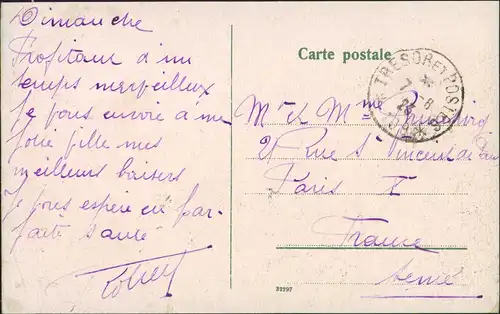 Dimanche
Profitant d'un
temps merveilleux
je vous envoie a me
jolie fille mes
meilleurs baisers
Je vous espère en par-
faite santé
Carte postale
TRESOR ET POSTES
Mr et Mme
Rue St Vincent de Paul
Paris X
France
Seine
32297